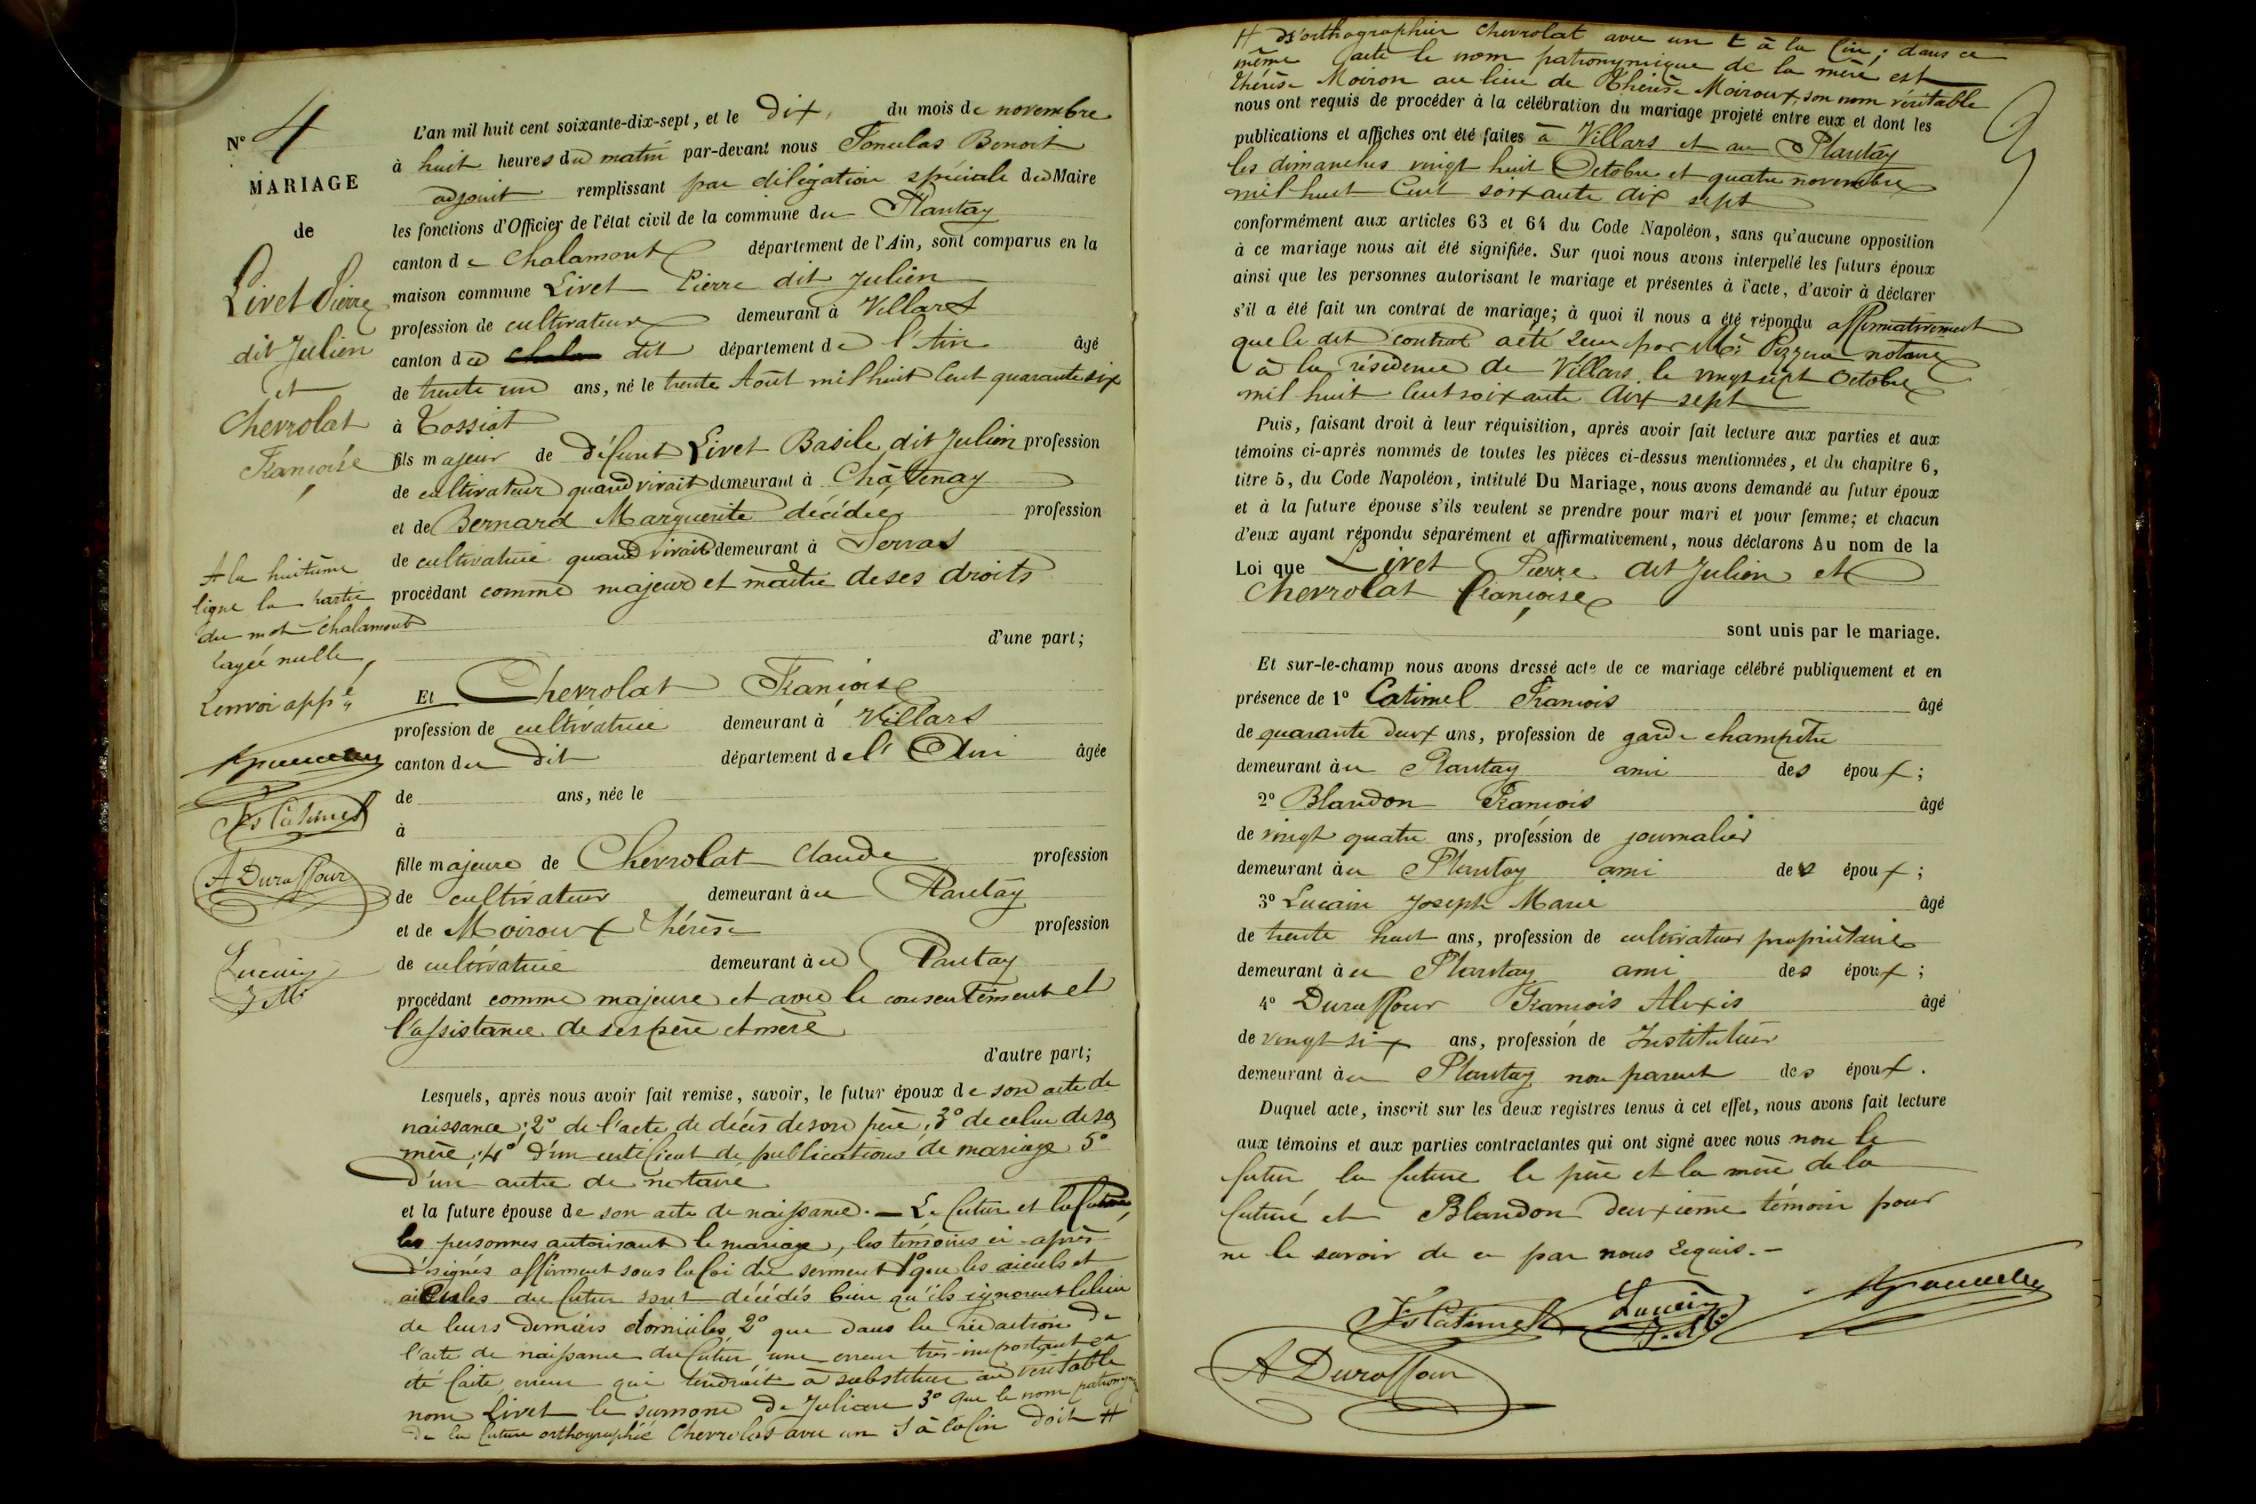 N° 4
MARIAGE
de
Livet Pierre
dit Julien
et
Chevrolat
Françoise
A la huitième
ligne la partie
du mot Chalamont
rayée nulle
Renvoi app.é
Fs Catimel
A Duraffour
Lucain
J. M.
L'an mil huit cent soixante-dix-sept, et le dix, du mois de novembre
à huit heures du matin par-devant nous Benoit
adjoint remplissant par délégation spéciale du Maire
les fonctions d'Officier de l'état civil de la commune du Plantay
canton de Chalamont département de l'Ain, sont comparus en la
maison commune Livet Pierre dit Julien
profession de cultivateur demeurant à Villars
canton du dit département de l'Ain âgé
de trente un ans, né le trente Août mil huit cent quarante six
à Tossiat
fils majeur de défunt Livet Basile dit Julien profession
de cultivateur quand vivait demeurant à Châtenay
et de Bernard Marguerite décédée profession
de cultivatrice quand vivait demeurant à Servas
procédant comme majeur et maître de ses droits
d'une part;
Et Chevrolat Françoise
profession de cultivatrice demeurant à Villars
canton du dit département de l'Ain âgée
de ans, née le
à
fille majeure de Chevrolat Claude profession
de cultivateur demeurant au Plantay
et de Moiroux Thérèse profession
de cultivatrice demeurant au Plantay
procédant comme majeure et avec le consentement et
l'assistance de ses père et mère
d'autre part;
Lesquels, après nous avoir fait remise, savoir, le futur époux de son acte de
naissance; 2° de l'acte de décès de son père; 3° de celui de sa
mère; 4° d'un certificat de publications de mariage 5°
d'un autre de notaire
et la future épouse de son acte de naissance. — Le futur et la future,
les personnes autorisant le mariage, les témoins ci-après
désignés affirment sous la foi du serment 1° que les aïeuls et
aïeules du futur sont décédés bien qu'ils ignorent le lieu
de leurs derniers domiciles, 2° que dans la rédaction de
l'acte de naissance du futur une erreur très-importante a
été faite, erreur qui tendrait à substituer au véritable
nom Livet le surnom de Julien 3° que le nom patronymique
de la future orthographié Chevrolas avec un s à la fin doit #
# s'orthographier Chevrolat avec un t à la fin; dans ce
même acte le nom patronymique de la mère est
Thérèse Moiron au lieu de Thérèse Moiroux, son nom véritable
nous ont requis de procéder à la célébration du mariage projeté entre eux et dont les
publications et affiches ont été faites à Villars et au Plantay
les dimanches vingt huit Octobre et quatre novembre
mil huit cent soixante dix sept
conformément aux articles 63 et 64 du Code Napoléon, sans qu'aucune opposition
à ce mariage nous ait été signifiée. Sur quoi nous avons interpellé les futurs époux
ainsi que les personnes autorisant le mariage et présentes à l'acte, d'avoir à déclarer
s'il a été fait un contrat de mariage; à quoi il nous a été répondu affirmativement
que le dit contrat a été reçu par Me notaire
à la résidence de Villars le vingt sept Octobre
mil huit cent soixante dix sept
Puis, faisant droit à leur réquisition, après avoir fait lecture aux parties et aux
témoins ci-après nommés de toutes les pièces ci-dessus mentionnées, et du chapitre 6,
titre 5, du Code Napoléon, intitulé Du Mariage, nous avons demandé au futur époux
et à la future épouse s'ils veulent se prendre pour mari et pour femme; et chacun
d'eux ayant répondu séparément et affirmativement, nous déclarons Au nom de la
Loi que Livet Pierre dit Julien et
Chevrolat Françoise
sont unis par le mariage.
Et sur-le-champ nous avons dressé acte de ce mariage célébré publiquement et en
présence de 1° Catimel François âgé
de quarante deux ans, profession de garde champêtre
demeurant au Plantay ami des époux;
2° Blandon François âgé
de vingt quatre ans, profession de journalier
demeurant au Plantay ami des époux;
3° Lucain Joseph Marie âgé
de trente huit ans, profession de cultivateur propriétaire
demeurant au Plantay ami des époux;
4° Duraffour François Alexis âgé
de vingt six ans, profession de Instituteur
demeurant au Plantay non parent des époux.
Duquel acte, inscrit sur les deux registres tenus à cet effet, nous avons fait lecture
aux témoins et aux parties contractantes qui ont signé avec nous non le
futur la future le père et la mère de la
future et Blandon deuxième témoin pour
ne le savoir de ce par nous requis. —
Fs Catimel Lucain J. M.
A Duraffour